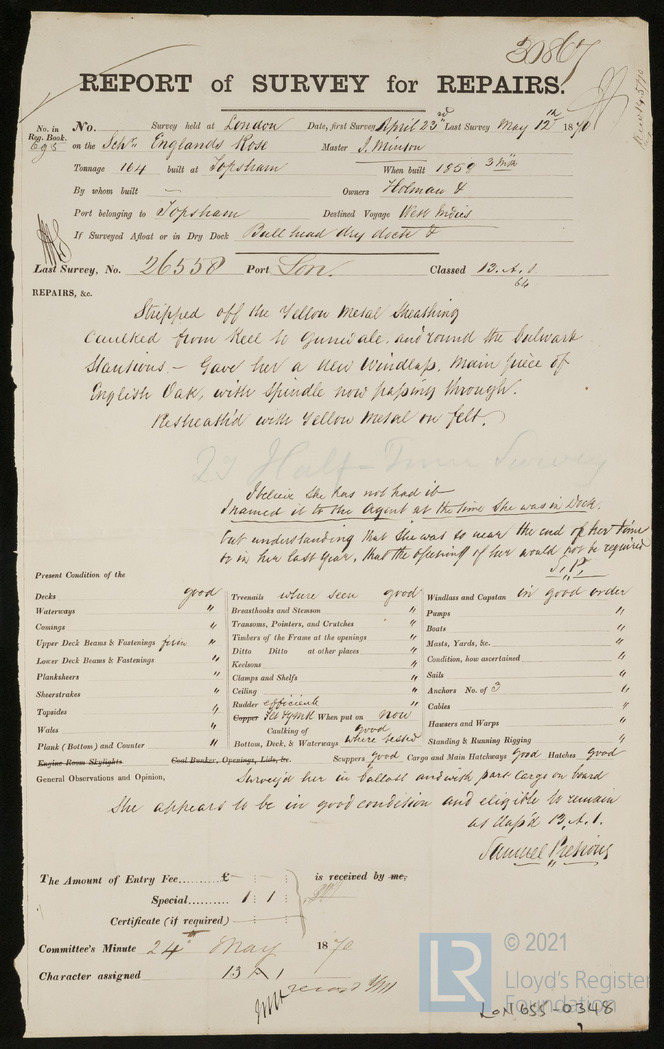 30867
REPORT of SURVEY for REPAIRS.
No. in Reg. Book. 695
No. Survey held at London Date, first Survey April 23rd Last Survey May 12th 1870
on the Schr Englands Rose Master J. Minson
Tonnage 164 built at Topsham When built 1858 3 mo
By whom built — Owners Holman &
Port belonging to Topsham Destined Voyage West Indies
If Surveyed Afloat or in Dry Dock Bull head dry dock &
Last Survey, No. 26558 Port Lon. Classed 13. A. 1.
64
REPAIRS, &c.
Stripped off the Yellow Metal Sheathing
Caulked from Keel to Gunwale. and round the bulwark
Stantions — Gave her a New Windlass, Main piece of
English Oak, with Spindle now passing through.
Resheath'd with Yellow Metal on felt.
Half-Time Survey
I believe she has not had it
I named it to the Agent at the time she was in Dock.
but understanding that she was so near the end of her time
or in her last year, that the opening of her would not be required
S. P.
Present Condition of the
Decks good
Waterways "
Comings "
Upper Deck Beams & Fastenings firm "
Lower Deck Beams & Fastenings "
Planksheers "
Sheerstrakes "
Topsides "
Wales "
Plank (Bottom) and Counter "
Engine Room Skylights
Treenails where seen good
Breasthooks and Stemson "
Transoms, Pointers, and Crutches "
Timbers of the Frame at the openings "
Ditto Ditto at other places "
Keelsons "
Clamps and Shelfs "
Ceiling "
Rudder efficient "
Copper Felt & YM When put on now
Caulking of good
Bottom, Deck, & Waterways where tested
Coal Bunker, Openings, Lids, &c.
Windlass and Capstan in good order
Pumps "
Boats "
Masts, Yards, &c. "
Condition, how ascertained "
Sails "
Anchors No. of 3 "
Cables "
Hawsers and Warps "
Standing & Running Rigging "
Scuppers good Cargo and Main Hatchways good Hatches good
General Observations and Opinion, Survey'd her in ballast and with part Cargo on board
She appears to be in good condition and eligible to remain
as Class'd 13. A. 1.
Samuel Pretious
The Amount of Entry Fee £ is received by me,
Special 1 : 1 :
Certificate (if required)
Committee's Minute 24th May 1870
Character assigned 13 A 1
record
LR
© 2021
Lloyd's Register
Foundation
LON 655-0348